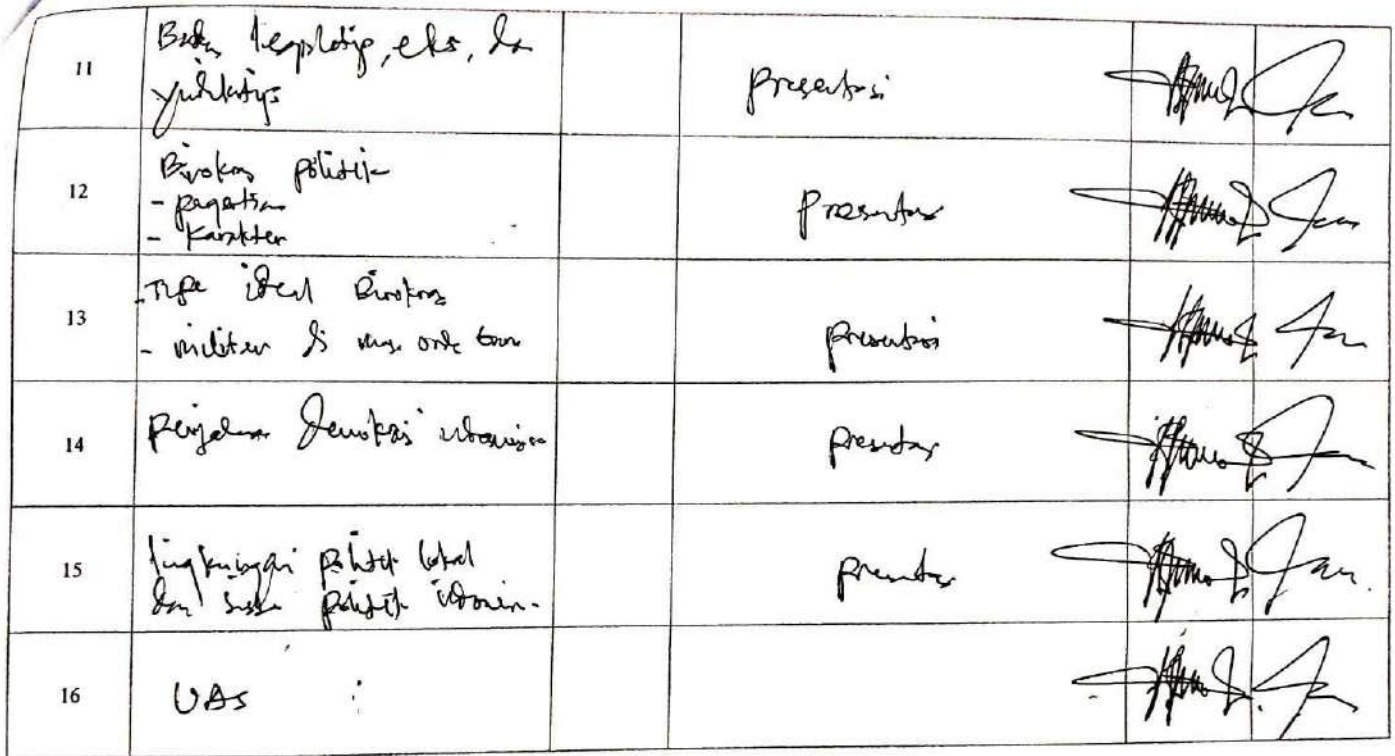 11
Badan legislatip, eks, dan
yudikatip
presentasi
12
Birokrasi politik
- pengertian
- Karakter
presentasi
13
- Tipe ideal Birokrasi
- militer di masa orde baru
presentasi
14
perjalanan demokrasi indonesia
presentasi
15
lingkungan politik lokal
dan sistem politik indonesia.
presentasi
16
UAS